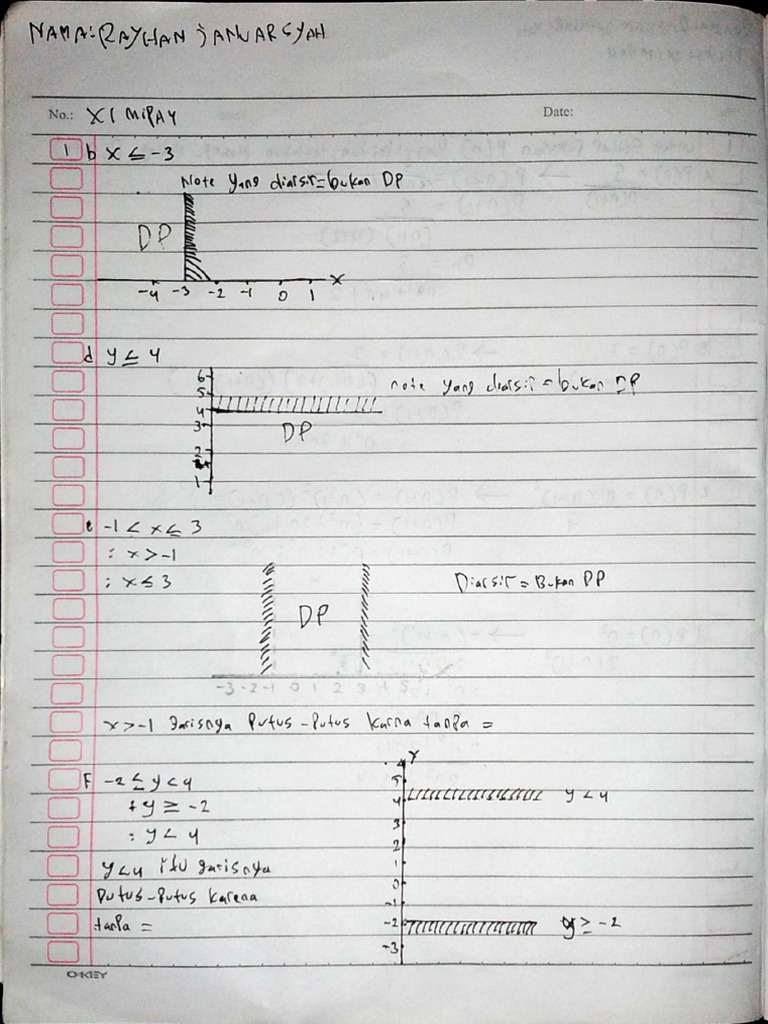 NAMA: RAYHAN JANUARSYAH
No.: XI MIPA4 Date:
1 b x ≤ -3
Note yang diarsir = bukan DP
DP
-4 -3 -2 -1 0 1 X
d y ≤ 4
6
5 note yang diarsir = bukan DP
4
3 DP
2
1
e -1 < x ≤ 3
: x > -1
: x ≤ 3 Diarsir = Bukan DP
DP
-3 -2 -1 0 1 2 3 4 5
x > -1 garisnya Putus-Putus karna tanpa =
Y
F -2 ≤ y < 4 5
: y ≥ -2 4 y < 4
: y < 4 3
2
y < 4 itu garisnya 1
Putus-Putus karena 0
-1
tanpa = -2 y ≥ -2
-3
O-KEY